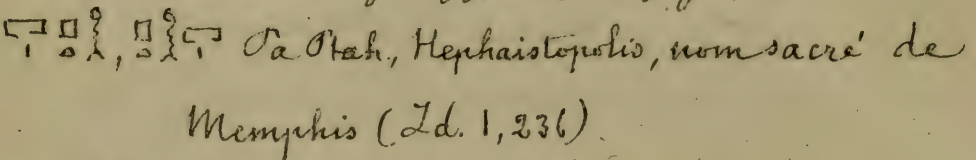 𓉐𓏤𓊪𓏏𓎛, 𓊪𓏏𓎛𓉐𓏤 Pa Ptah, Hephaistopolis, nom sacré de
Memphis (Id. 1, 236).